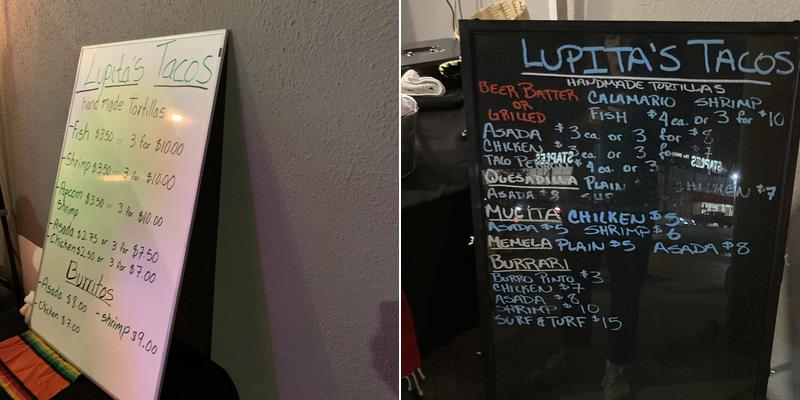 Lupita's Tacos
hand made Tortillas
-Fish $3.50 or 3 for $10.00
-Shrimp $3.50 or 3 for $10.00
-Popcorn $3.50 or 3 for $10.00
Shrimp
-Asada $2.75 or 3 for $7.50
-Chicken $2.50 or 3 for $7.00
Burritos
-Asada $8.00 -shrimp $9.00
-Chicken $7.00
LUPITA'S TACOS
HANDMADE TORTILLAS
BEER BATTER
OR
GRILLED
CALAMARIO SHRIMP
FISH $4 ea. or 3 for $10
ASADA $3 ea. or 3 for $8
CHICKEN $3 ea or 3 for $7
TACO $4 ea. or 3
STAPLES
STAPLES
QUESADILLA PLAIN CHICKEN $7
ASADA $8
MUCITA CHICKEN $5
ASADA $5 SHRIMP $6
MEMELA PLAIN $5 ASADA $8
BURRARI
BURRO PINTO $3
CHICKEN $7
ASADA $8
SHRIMP $10
SURF & TURF $15